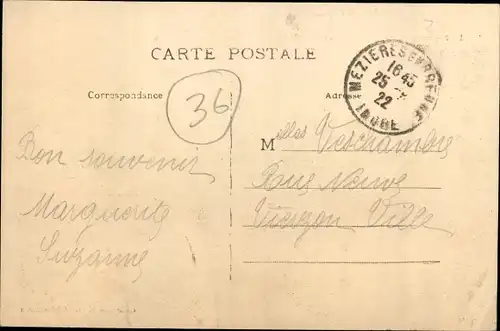 CARTE POSTALE
Correspondance
Adresse
36
MEZIERES EN BRENNE
16 45
25
22
INDRE
Mlles Veschambre
Rue Neuve
Vierzon Ville
Bon souvenir
Marguerite
Suzanne